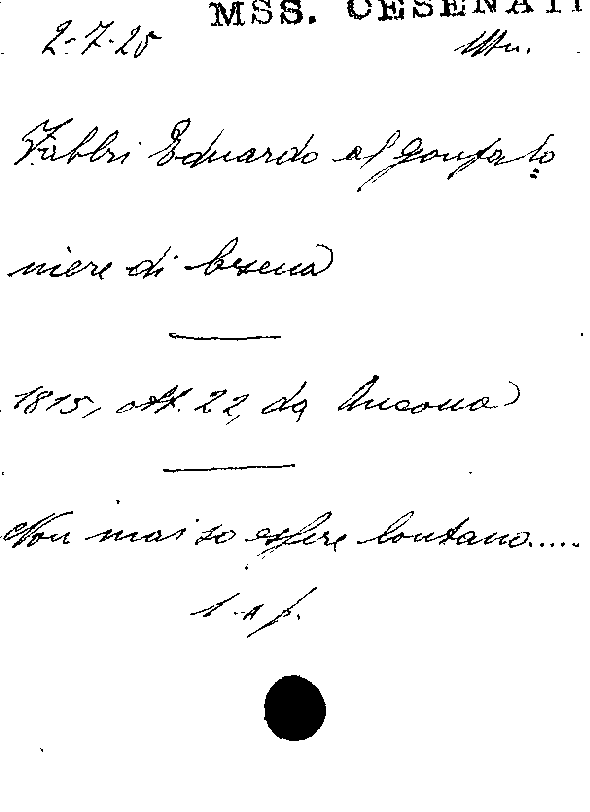 MSS. CESENATI
2-7-25
Fabbri Eduardo al gonfalo
niere di Cesena
1815, ott. 22, da Ancona
Non mai so essere lontano.....
1-a f.